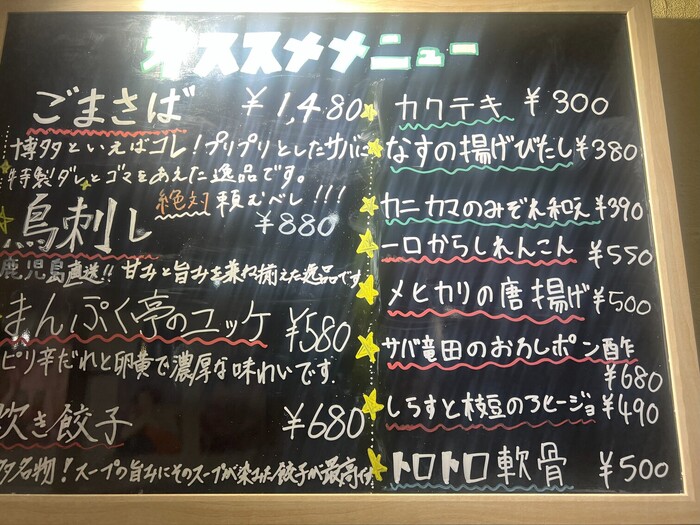 オススメメニュー
ごまさば ¥1,480
博多といえばコレ！プリプリとしたサバに
特製ダレとゴマをあえた逸品です。
絶対頼むべし!!!
鳥刺し ¥880
鹿児島直送!! 甘みと旨みを兼ね揃えた逸品です
まんぷく亭のユッケ ¥580
ピリ辛だれと卵黄で濃厚な味わいです.
炊き餃子 ¥680
多名物！スープの旨みにそのスープが染みた餃子が最高
カクテキ ¥300
なすの揚げびたし ¥380
カニカマのみぞれ和え ¥390
一口からしれんこん ¥550
メヒカリの唐揚げ ¥500
サバ竜田のおろしポン酢
¥680
しらすと枝豆のアヒージョ ¥490
トロトロ軟骨 ¥500